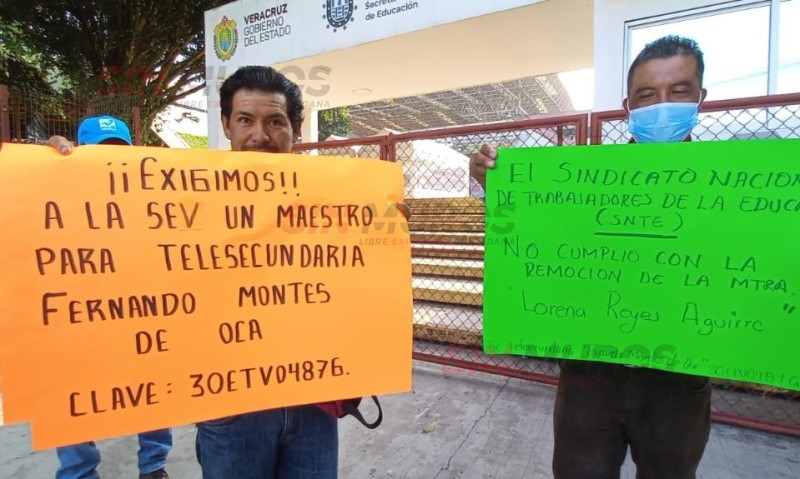 VERACRUZ
GOBIERNO
DEL ESTADO
de Educación
¡¡EXIGIMOS!!
A LA SEV UN MAESTRO
PARA TELESECUNDARIA
FERNANDO MONTES
DE OCA
CLAVE: 30ETV0487G.
El SINDICATO NACION
DE TRABAJADORES DE LA EDUCA
(SNTE)
NO CUMPLIO CON LA
REMOCION DE LA MTRA.
"Lorena Reyes Aguirre"
SIN MUROS
LIBRE EXPRESIÓN CIUDADANA